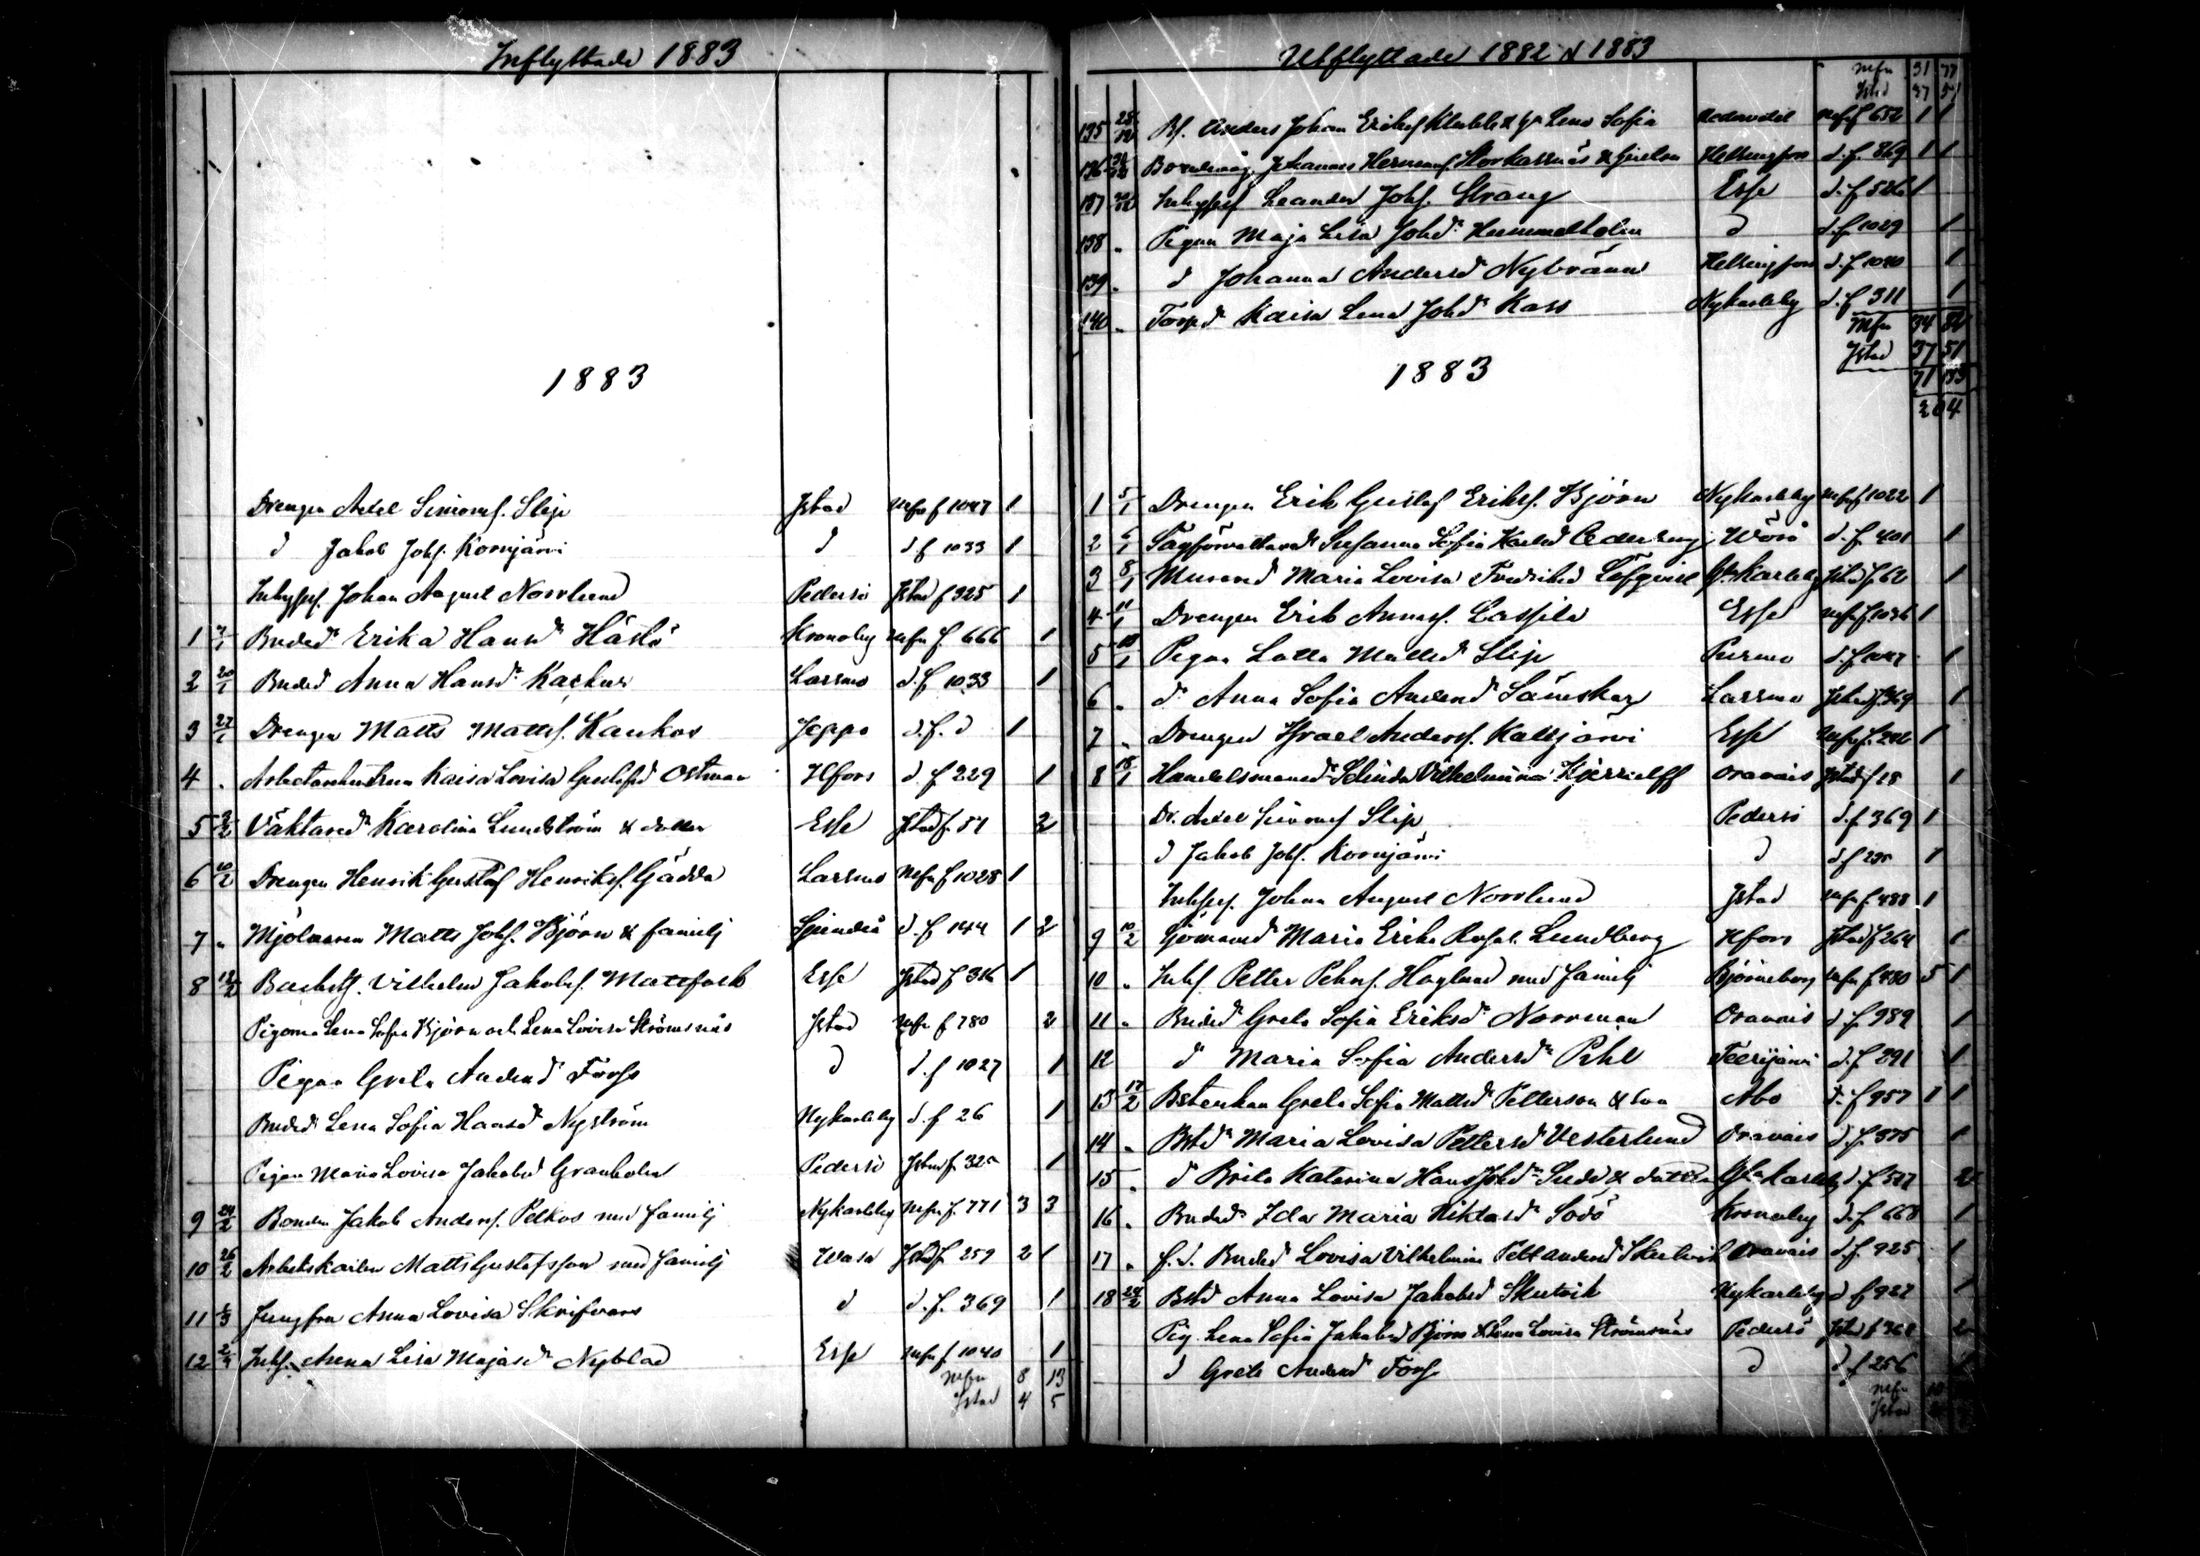 Inflyttade 1883
1883
Drengen Axel Simonsf. Slip Jstad Mfn f 1047 1
d Jakob Johsf. Kornjärvi d d f 1033 1
Inhypsf. Johan August Norrlund Pedersö Jstad f 325 1
1 Bnded Erika Hansd Hästö Kronoby Mfn f. 666 1
2 20/1 Bnded Anna Hansd Larsmo d. f 1033 1
3 27/1 Drengen Matts Mattsf. Kaukos Jeppo d. f. d 1
4 . Kaisa Lovisa Gustafsd Östman Hfors d. f 229 1
5 2/2 Väktared Karolina Lundström & dotter Esse Jstad f. 51 2
6 10/2 Drengen Henrik Gustaf Henriksf. Gädda Larsmo Mfn f 1028 1
7 " Mjölnaren Matts Johsf. Björn & familj d. f 144 1 2
8 Vilhelm Jakobsf. Mattfolk Esse Jstad f 316 1
Pigorna Lena Sofia Björn och Lena Lovisa Strömsnäs Jstad Mfn f 780 2
Pigan Greta Andersd Forss d d. f 1027 1
Bnded Lena Sofia Hansd Nyström Nykarleby d. f 26 1
Pigan Maria Lovisa Jakobsd Granholm Pedersö Jstad f. 1
9 24/2 Bonden Jakob Andersf. Pelkos med familj Nykarleby Mfn f. 771 3 3
10 26/2 Arbetskarlen Matts Gustafsson med familj Wasa Jstad f. 259 2 1
11 Jungfru Anna Lovisa Skrifvars d d. f. 369 1
12 Inhsf. Anna Lisa Majasd Nyblad Esse Mfn f 1040 1
Mfn 8 13
Jstad 4 5
Utflyttade 1882 & 1883
Mfn 31 77
Jstad 37 51
135 28/12 Bf. Anders Johan Eriksf Klubb & h Lena Sofia Mfn f 652 1 1
136 Johannes Hermansf. Storkarsnäs & Helsingfors d. f. 869 1 1
137 Inhypsf Leander Johsf. Strang Esse d. f 526 1
138 " Pigan Maja Lisa Johsd Hummelholm d d. f 1029 1
139 " d Johanna Andersd Nybränn Helsingfors d. f 1040 1
140 " Torpd Kaisa Lena Johsd Kass Nykarleby d. f 311 1
Mfn 34 82
Jstad 37 51
71 133
204
1883
1 5/1 Drengen Erik Gustaf Eriksf. Björn Nykarleby Mfn f 1022 1
2 Susanna Sofia Karlsd Wörå d. f. 401 1
3 8/1 Murared Maria Lovisa Fredriksd Löfqvist Gla Karleby Jstad f 62 1
4 11/1 Drengen Erik Annasf. Lassila Esse Mfn f 1036 1
5 Pigan Lotta Mattsd Slip Purmo d. f 1047 1
6 " d Anna Sofia Andersd Larsmo Jstad f. 369 1
7 " Drengen Israel Andersf. Kaltjärvi Esse Mfn f. 1
8 18/1 Handelsmansd Selinda Vilhelmina Oravais Jstad f 18 1
Dr. Axel Simonsf Slip Pedersö d. f 369 1
d Jakob Johsf. Kornjärvi d d f 1
Inhypsf. Johan August Norrlund Jstad Mfn f. 488 1
9 10/2 Sjömansd Maria Erika Lundberg Hfors Jstad f 264 1
10 " Inhsf Petter Pehrsf. Höglund med familj Björneborg Mfn f 480 5 1
11 " Bnded Greta Sofia Eriksd Norrman Oravais d. f. 989 1
12 d Maria Sofia Andersd Pihl Teerijärvi d. f 891 1
13 17/2 Greta Sofia Mattsd Petterson & son Åbo d. f 957 1 1
14 " Bnd Maria Lovisa Pettersd Vesterlund Oravais d. f. 375 1
15 " d Brita Katarina Hans Johsd & dotter Gla Karleby d. f 2
16 " Bnded Ida Maria Viktorsd Södö Kronoby d. f 668 1
17 " f. d. Bnded Lovisa Vilhelmina Pett Andersd Skutvik Oravais d. f. 925 1
18 24/2 Bnd Anna Lovisa Jakobsd Skutvik Nykarleby d f 927 1
Pig. Lena Sofia Jakobsd Björn & Lena Lovisa Strömsnäs Pedersö Jstad f 368 2
d Greta Andersd Forss d d. f 256 1
Mfn
Jstad